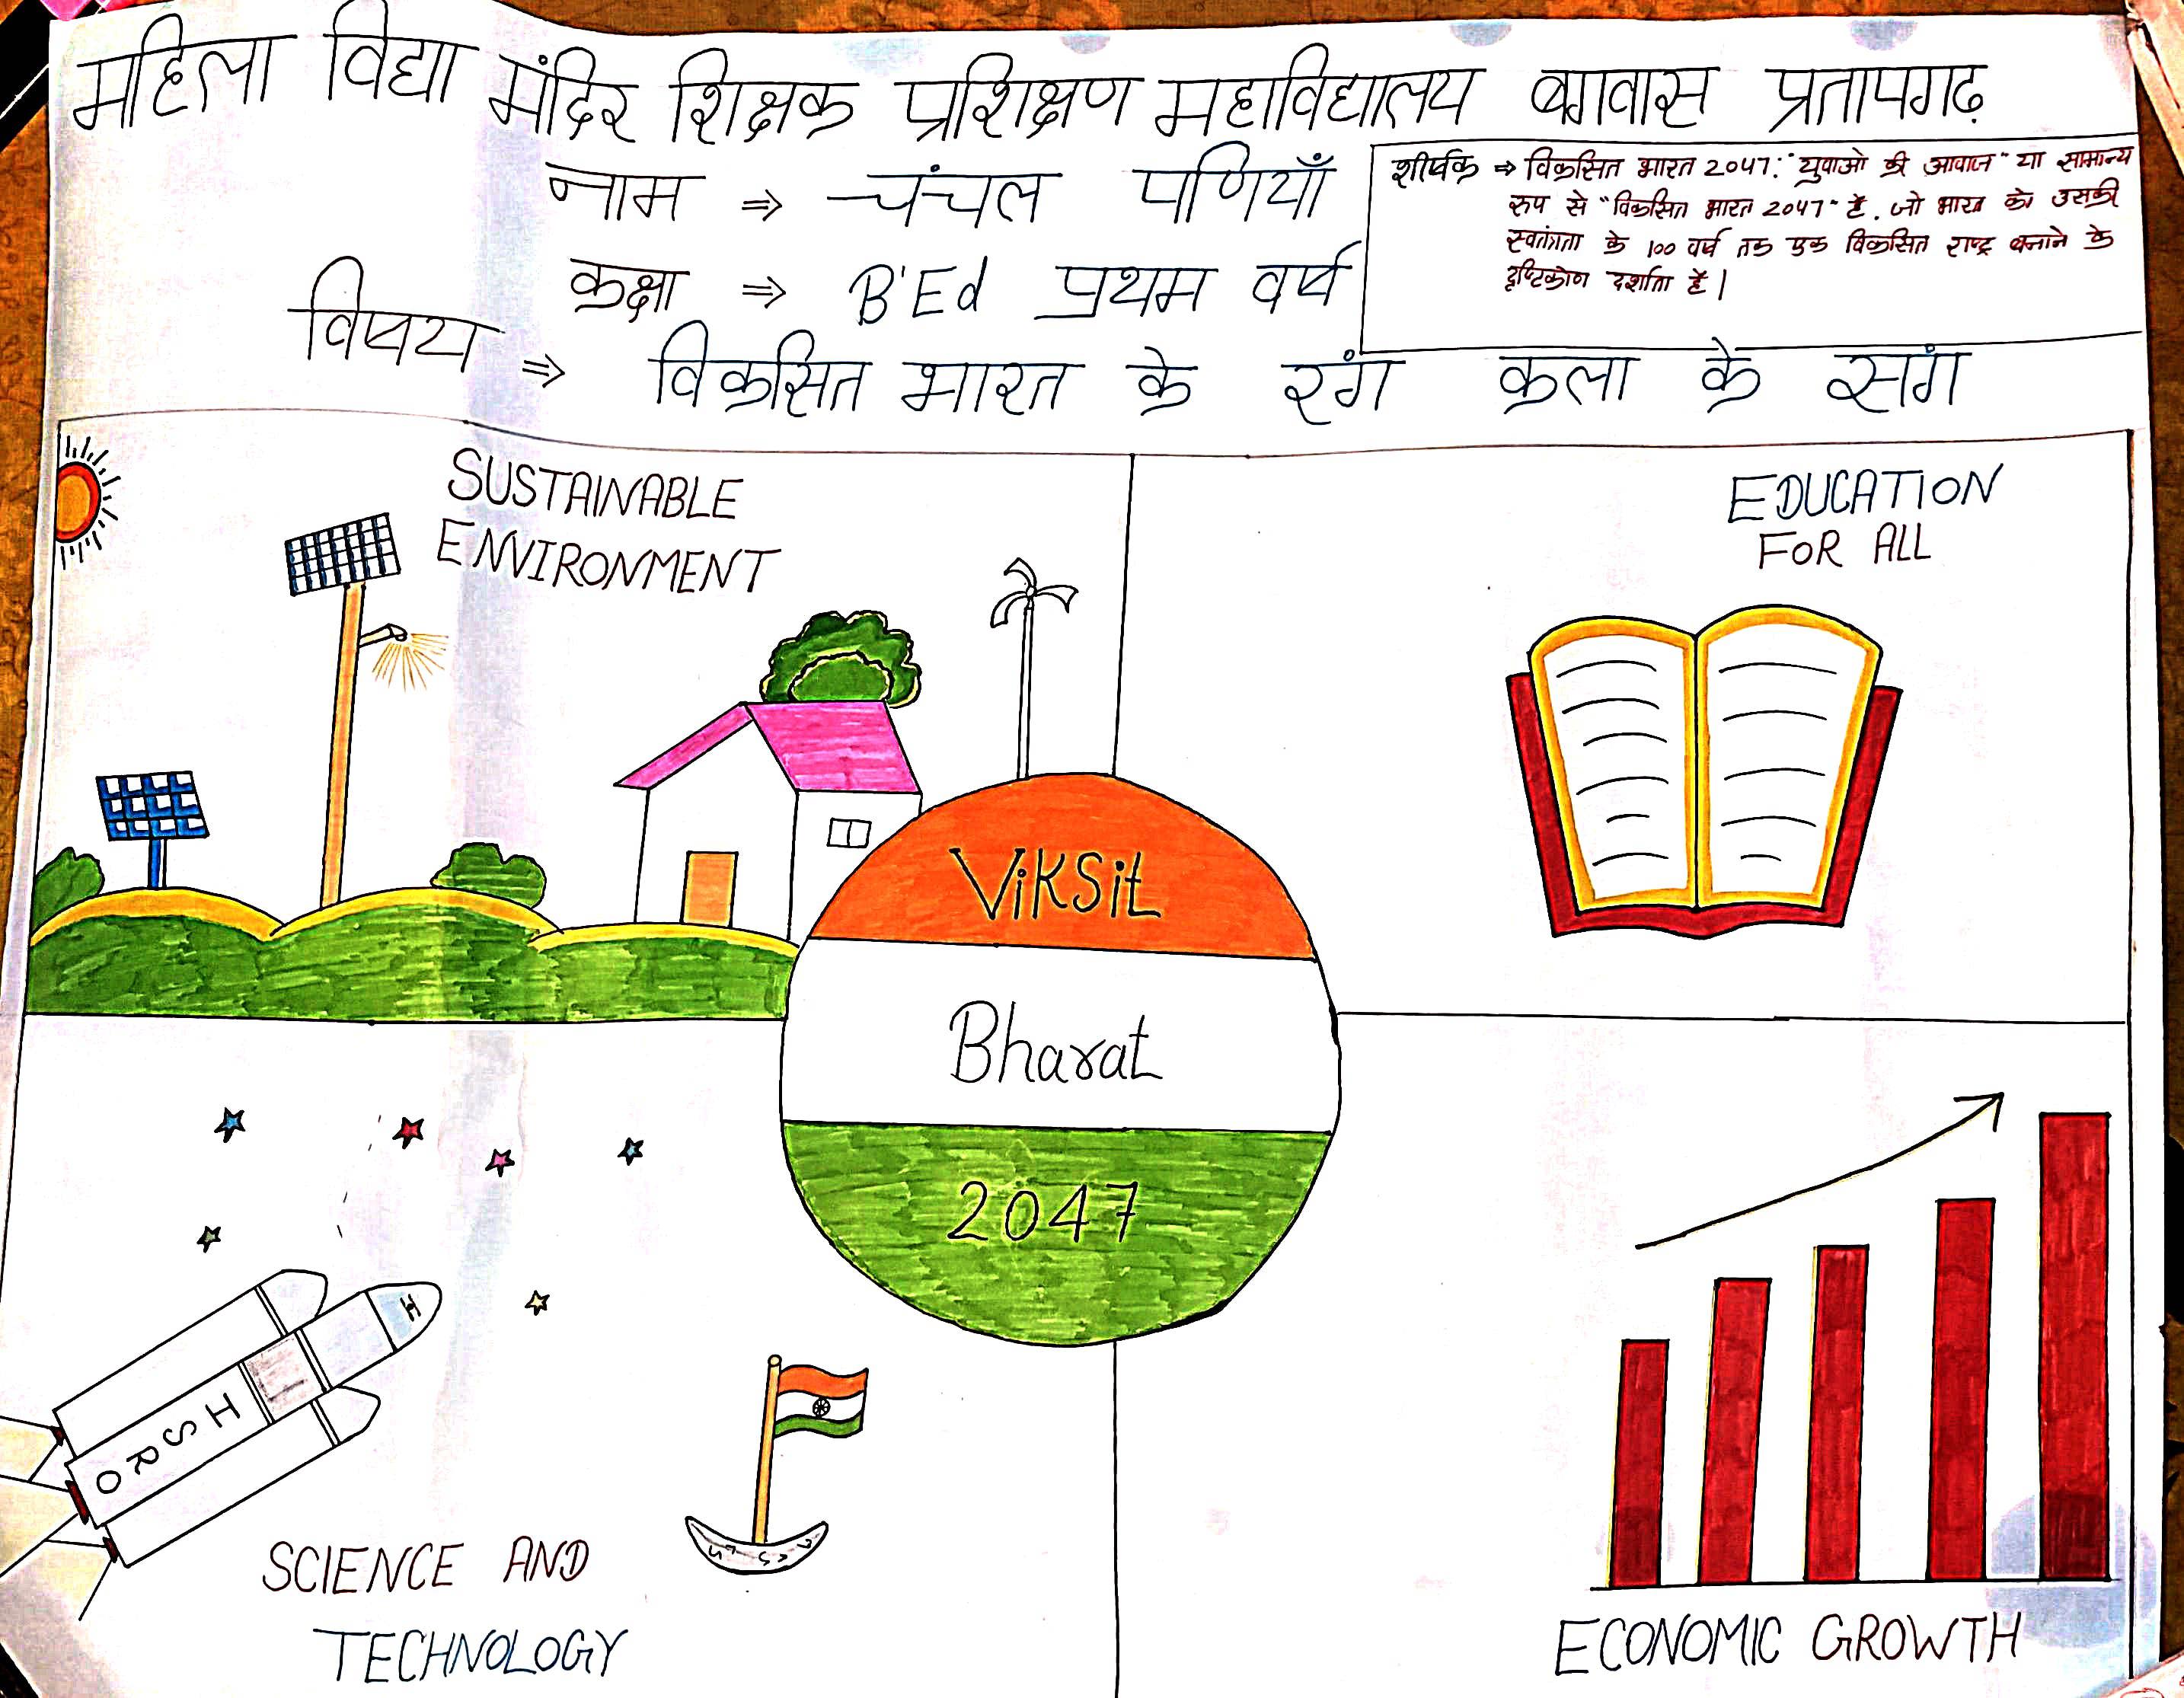 महिला विद्या मंदिर शिक्षक प्रशिक्षण महाविद्यालय बगवास प्रतापगढ़
नाम ⇒ चंचल पणियाँ
कक्षा ⇒ B'Ed प्रथम वर्ष
शीर्षक ⇒ विकसित भारत 2047: "युवाओ की आवाज" या सामान्य
रुप से "विकसित भारत 2047" है. जो भारत को उसकी
स्वतंत्रता के 100 वर्ष तक एक विकसित राष्ट्र बनाने के
दृष्टिकोण दर्शाता है।
विषय ⇒ विकसित भारत के रंग कला के संग
SUSTAINABLE
ENVIRONMENT
EDUCATION
FOR ALL
Viksit
Bharat
2047
HSRO
SCIENCE AND
TECHNOLOGY
ECONOMIC GROWTH